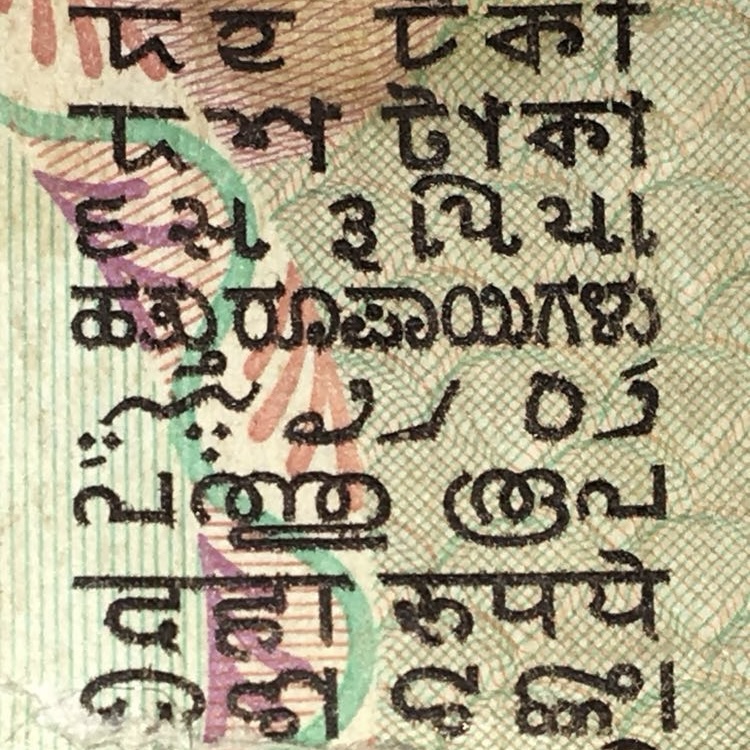 দহ টকা
দশ টাকা
દસ રૂપિયા
ಹತ್ತು ರೂಪಾಯಿಗಳು
പത്തു രൂപ
दहा रुपये
ଦଶ ଟଙ୍କା